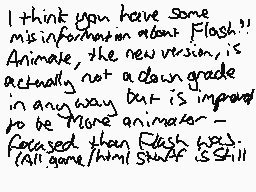 I think you have some
misinformation about Flash!!
Animate, the new version, is
actually not a downgrade
in any way but is improved
to be more animator -
focused than Flash was.
(All game/html stuff is still